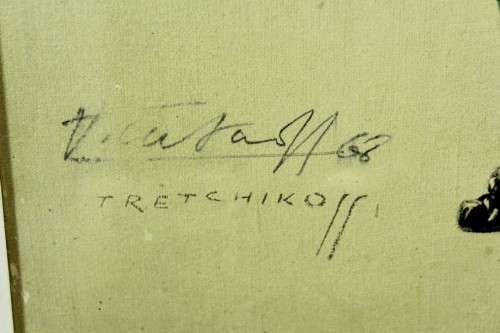 V. Tretchikoff 68
TRETCHIKOff